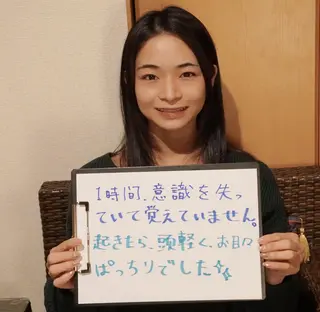 1時間、意識を失っ
ていて覚えていません。
起きたら、頭軽く、お目々
ぱっちりでした✨